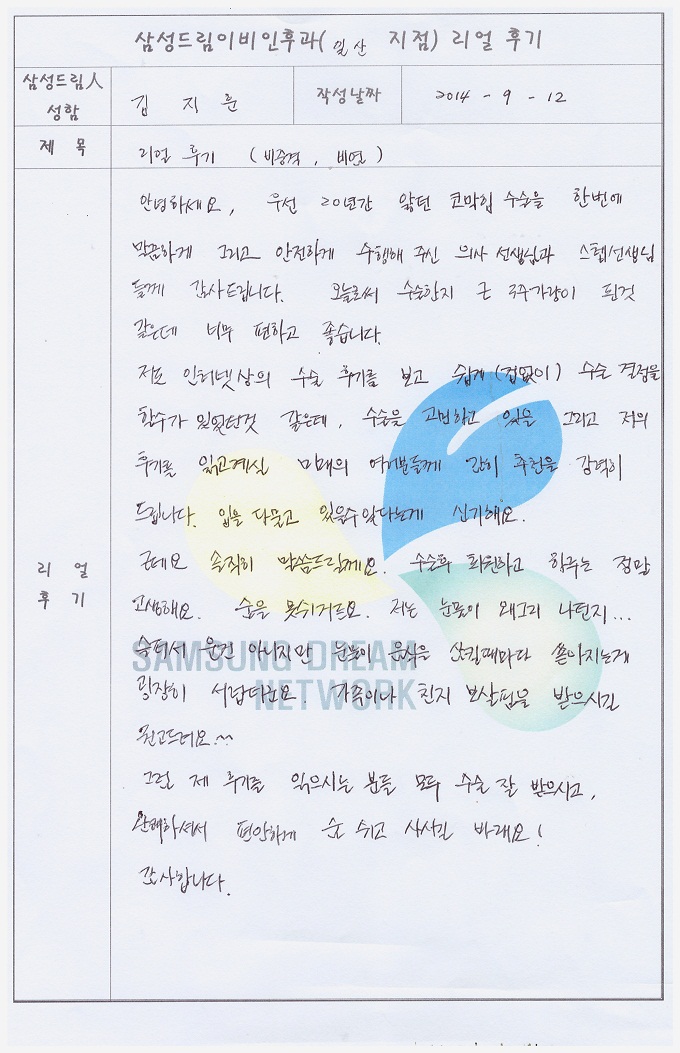 삼성드림이비인후과( 일산 지점) 리얼 후기
삼성드림人 성함
김 지 훈
작성날짜
2014 - 9 - 12
제 목
리얼 후기 ( 비중격 , 비염 )
리 얼 후 기
안녕하세요, 우선 20년간 앓던 코막힘 수술을 한번에
말끔하게 그리고 안전하게 수행해 주신 의사 선생님과 스텝선생님
들께 감사드립니다. 오늘로써 수술한지 근 3주가량이 된것
같은데 너무 편하고 좋습니다.
저도 인터넷상의 수술 후기를 보고 쉽게 (겁없이) 수술 결정을
할수가 있었던것 같은데, 수술을 고민하고 있을 그리고 저의
후기를 읽고계실 미래의 여러분들께 감히 추천을 강력히
드립니다. 입을 다물고 있을수 있다는게 신기해요.
근데요 솔직히 말씀드릴께요. 수술후 퇴원하고 하루는 정말
고생해요. 숨을 못쉬거든요. 저는 눈물이 왜그리 나던지...
슬퍼서 운건 아니지만 눈물이 음식을 삼킬때마다 쏟아지는게
굉장히 서럽더군요. 가족이나 친지 보살핌을 받으시길
권고드려요~~
그럼 제 후기를 읽으시는 분들 모두 수술 잘 받으시고,
완쾌하셔서 편안하게 숨 쉬고 사시길 바래요!
감사합니다.
SAMSUNG DREAM
NETWORK